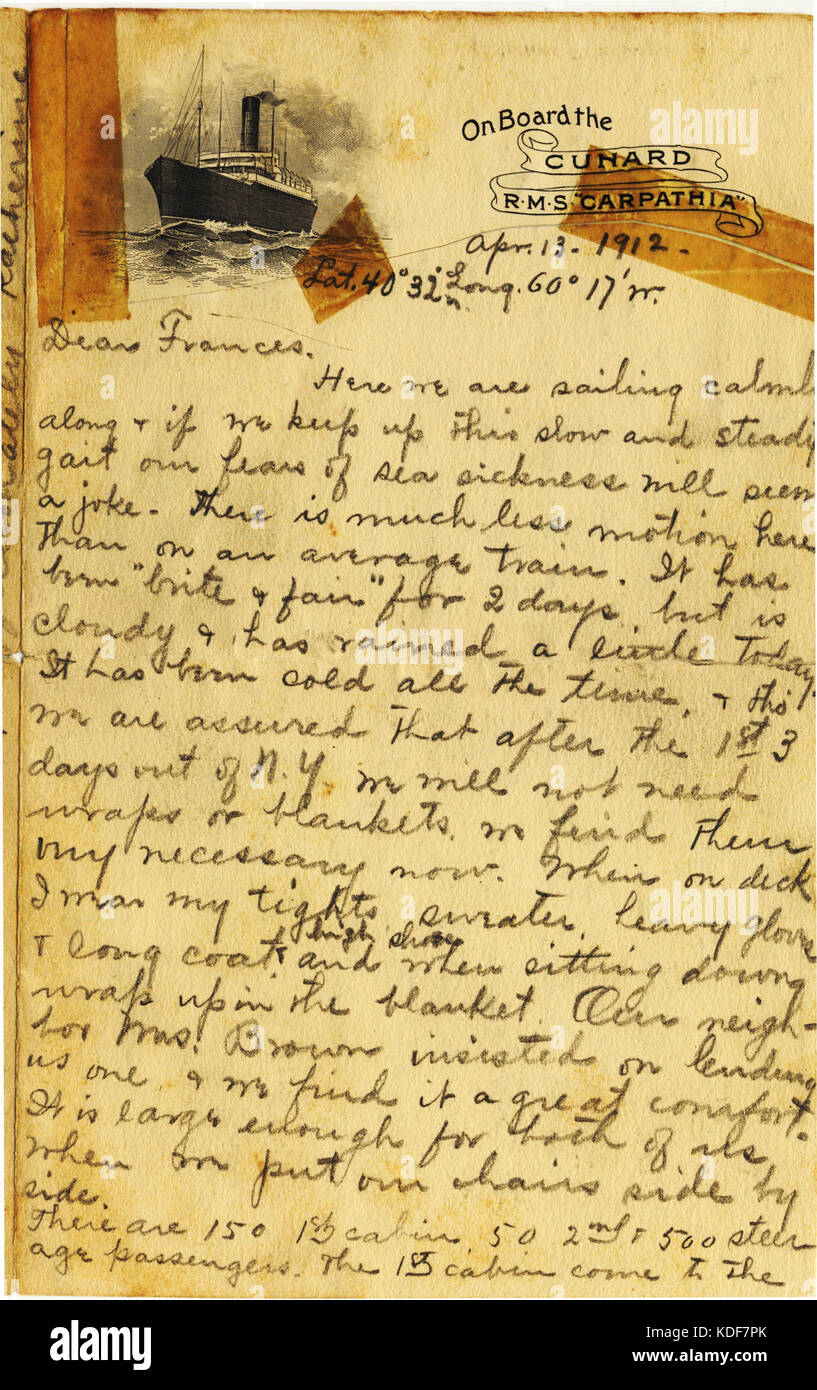 On Board the
CUNARD
R·M·S "CARPATHIA"
Apr. 13 - 1912 -
Lat. 40° 32' n Long. 60° 17' W.
Dear Frances.
Here we are sailing calml
along & if we keep up this slow and steady
gait our fears of sea sickness will seem
a joke - There is much less motion here
than on an average train. It has
been "brite & fair" for 2 days, but is
cloudy & has rained a little today.
It has been cold all the time, & tho
we are assured that after the 1st 3
days out of N.Y. we will not need
wraps or blankets, we find them
very necessary now. When on deck
I wear my tights, sweater, heavy gloves
high shoes
& long coat, and when sitting down
wrap up in the blanket. Our neigh-
bor Mrs. Brown insisted on lending
us one, & we find it a great comfort.
It is large enough for both of us
when we put our chairs side by
side.
There are 150 1st cabin, 50 2nd & 500 steer
age passengers. The 1st cabin come to the
Katherine
alamy
a
alamy
Image ID: KDF7PK
www.alamy.com